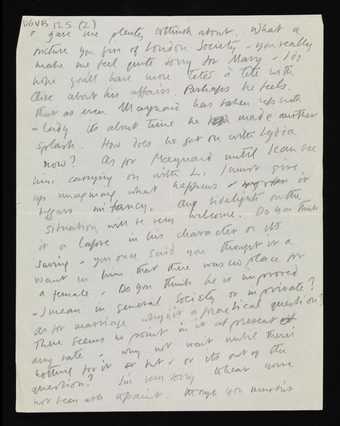 VGVB 12.5 (2)
& gave me plenty to think about. What a
picture you give of London Society - you really
make me feel quite sorry for Mary - I do
hope you'll have more tete a tete with
Clive about his affairs. Perhaps he feels
that as even Maynard has taken up with
a lady its about time he made another
splash. How does he get on with Lydia
now? As for Maynard until I can see
him carrying on with L. I must give
up imagining what happens - it
beggars my fancy. Any sidelights on the
situation will be very welcome. Do you think
it a lapse in his character or its
saving - you once said you thought it a
want in him that there was no place for
a female. Do you think he is improved
- I mean in general Society or in private?
As for marriage why is it a practical question?
There seems no point in it at present at
any rate - why not wait until there's
nothing for it or its out of the
question? I'm very sorry to hear you've
not been able to paint. though you